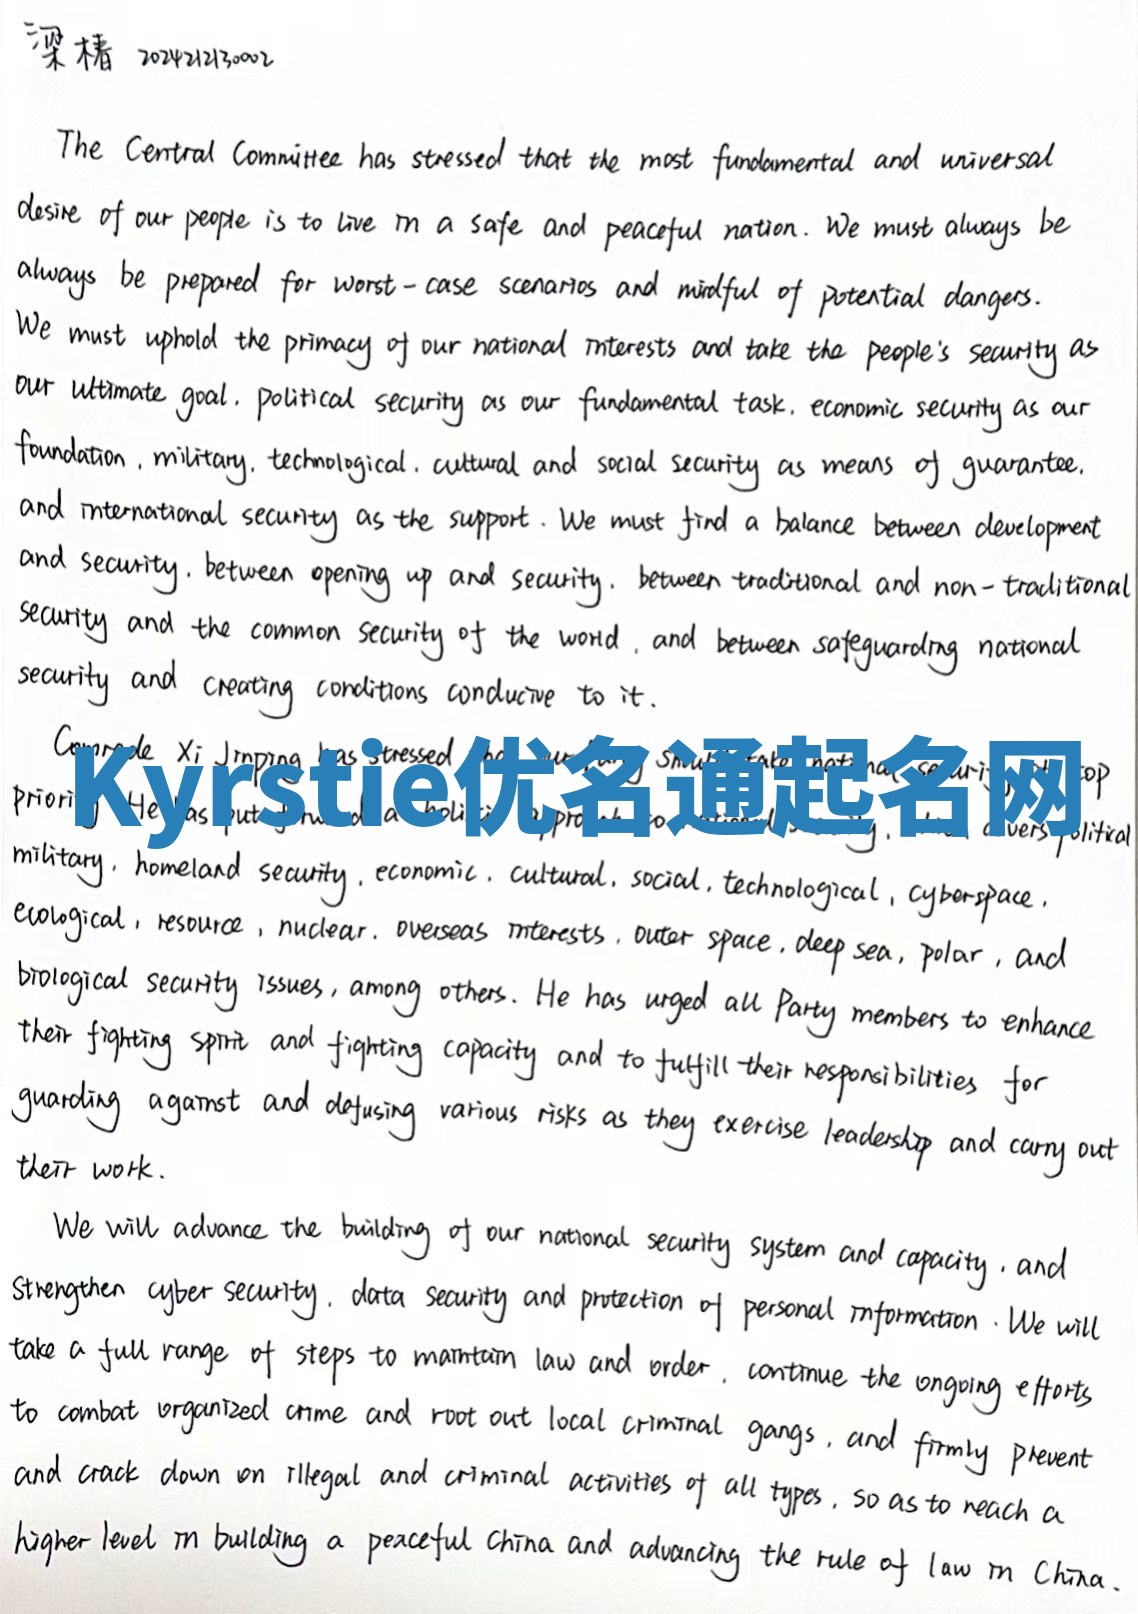 梁椿 2024212130002
The Central Committee has stressed that the most fundamental and universal
desire of our people is to live in a safe and peaceful nation. We must always be
always be prepared for worst-case scenarios and mindful of potential dangers.
We must uphold the primacy of our national interests and take the people's security as
our ultimate goal, political security as our fundamental task, economic security as our
foundation, military, technological, cultural and social security as means of guarantee,
and international security as the support. We must find a balance between development
and security, between opening up and security, between traditional and non-traditional
security and the common security of the world, and between safeguarding national
security and creating conditions conducive to it.
Comrade Xi Jinping has stressed national security top
Kyrstie优名通起名网
priority He has put a political
military, homeland security, economic, cultural, social, technological, cyberspace,
ecological, resource, nuclear, overseas interests, outer space, deep sea, polar, and
biological security issues, among others. He has urged all Party members to enhance
their fighting spirit and fighting capacity and to fulfill their responsibilities for
guarding against and defusing various risks as they exercise leadership and carry out
their work.
We will advance the building of our national security system and capacity, and
strengthen cyber security, data security and protection of personal information. We will
take a full range of steps to maintain law and order, continue the ongoing efforts
to combat organized crime and root out local criminal gangs, and firmly prevent
and crack down on illegal and criminal activities of all types, so as to reach a
higher level in building a peaceful China and advancing the rule of law in China.